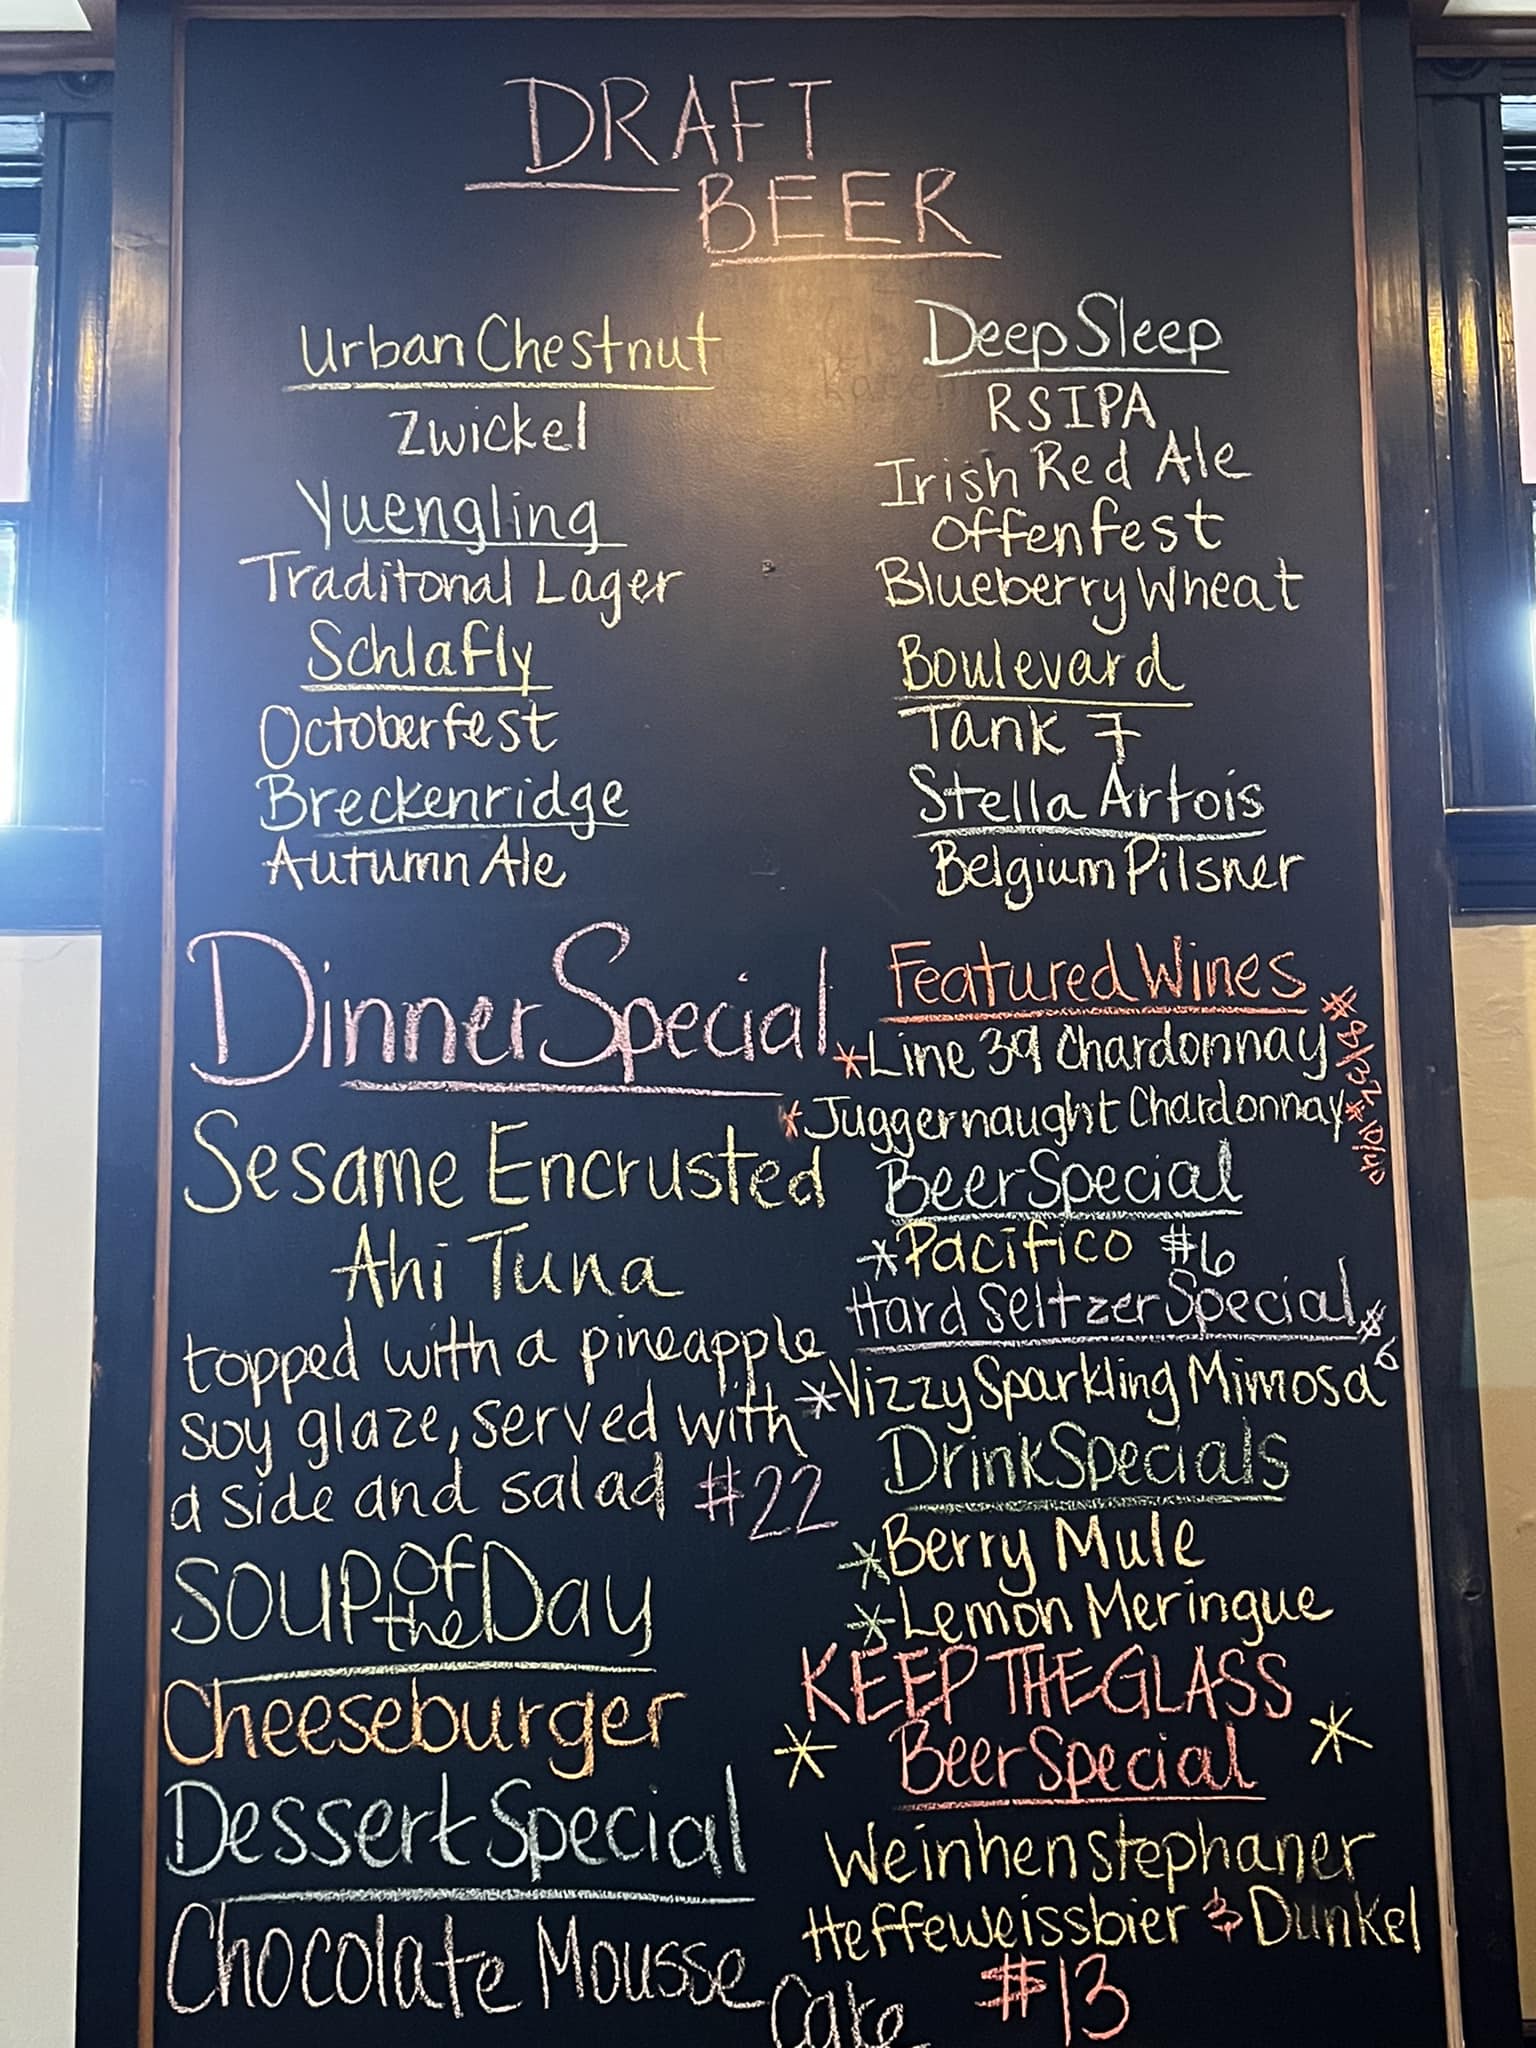 DRAFT
BEER
Urban Chestnut
Zwickel
Yuengling
Traditonal Lager
Schlafly
Octoberfest
Breckenridge
Autumn Ale
Deep Sleep
RSIPA
Irish Red Ale
Offenfest
Blueberry Wheat
Boulevard
Tank 7
Stella Artois
Belgium Pilsner
Dinner Special
Sesame Encrusted
Ahi Tuna
topped with a pineapple
soy glaze, served with
a side and salad $22
Soup of the Day
Cheeseburger
Dessert Special
Chocolate Mousse
Cake
Featured Wines
*Line 39 Chardonnay
*Juggernaught Chardonnay
Beer Special
*Pacifico $6
Hard Seltzer Special $6
*Vizzy Sparkling Mimosa
Drink Specials
*Berry Mule
*Lemon Meringue
KEEP THE GLASS
* Beer Special *
Weinhenstephaner
Heffeweissbier & Dunkel
$13